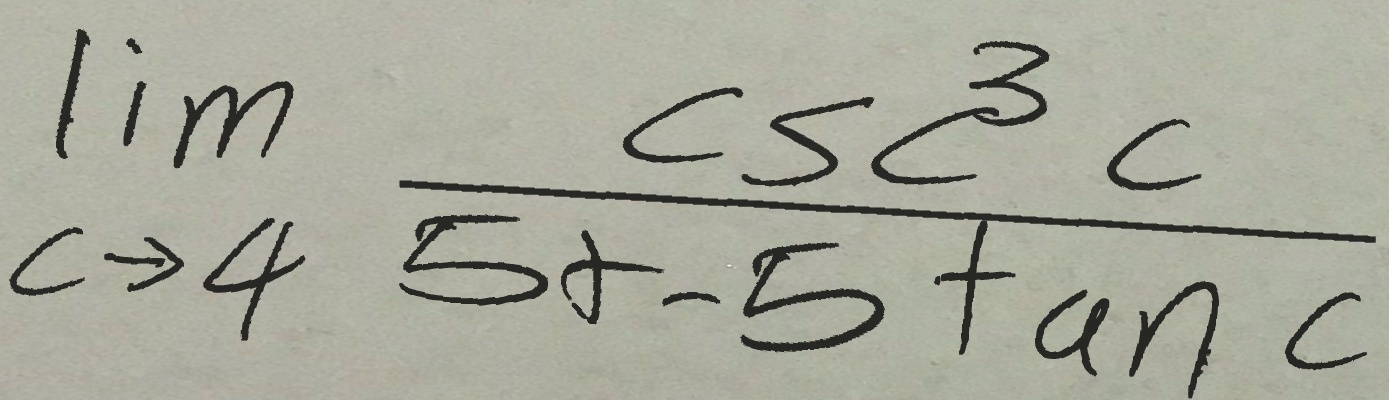 \lim_{c \to 4} \frac{\csc^3 c}{5 + -5 \tan c}